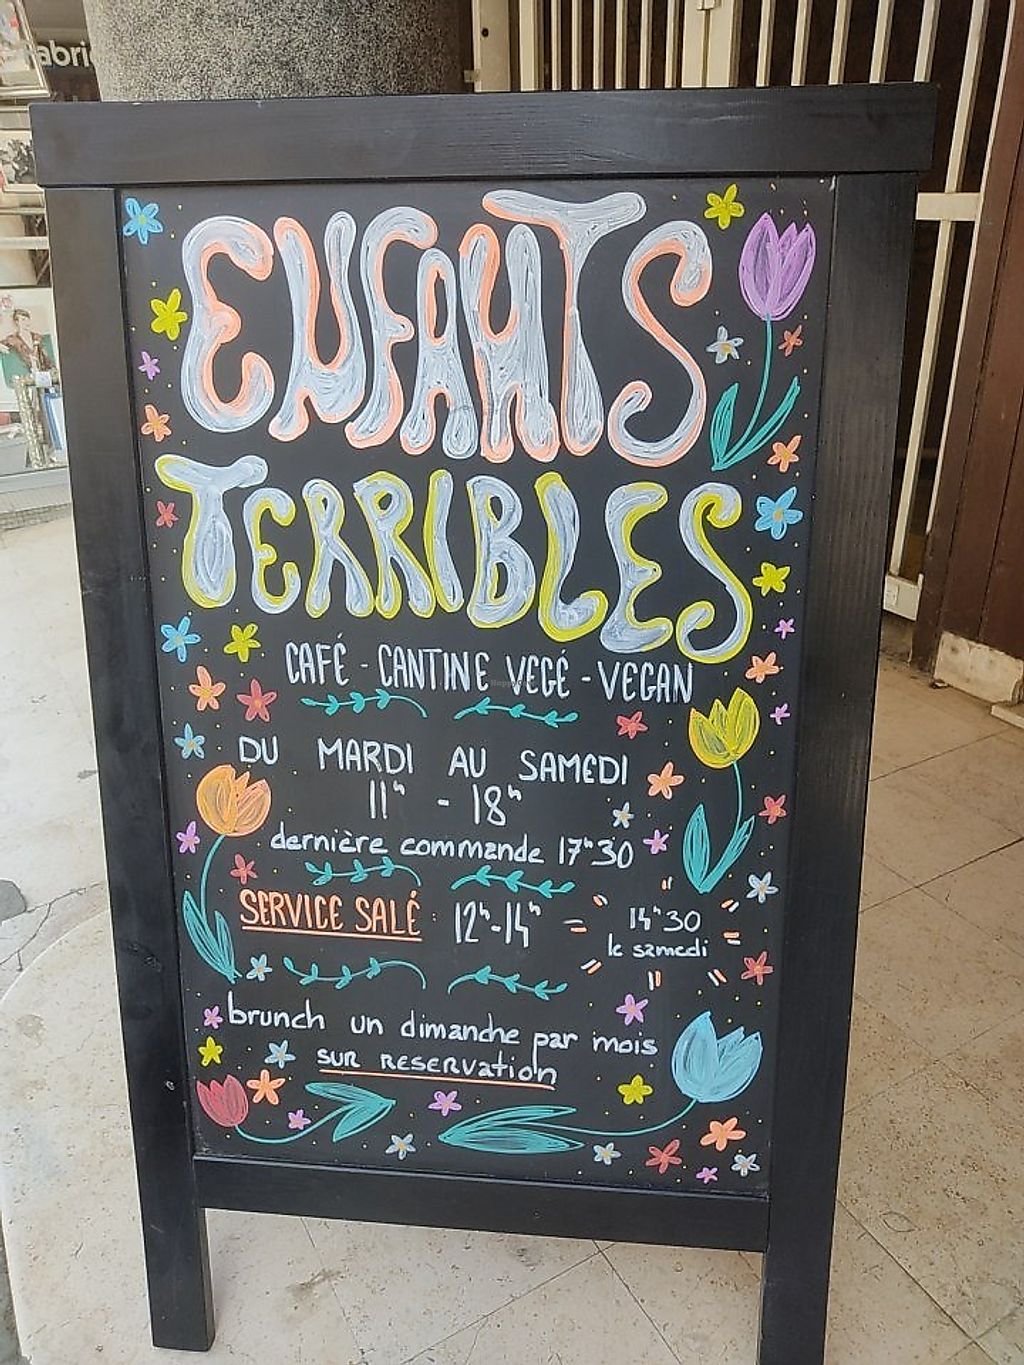 abric
ENFANTS
TERRIBLES
CAFÉ - CANTINE VEGÉ - VEGAN
DU MARDI AU SAMEDI
11h - 18h
dernière commande 17h30
SERVICE SALÉ : 12h-14h = 14h30
le samedi
brunch un dimanche par mois
SUR RESERVATION